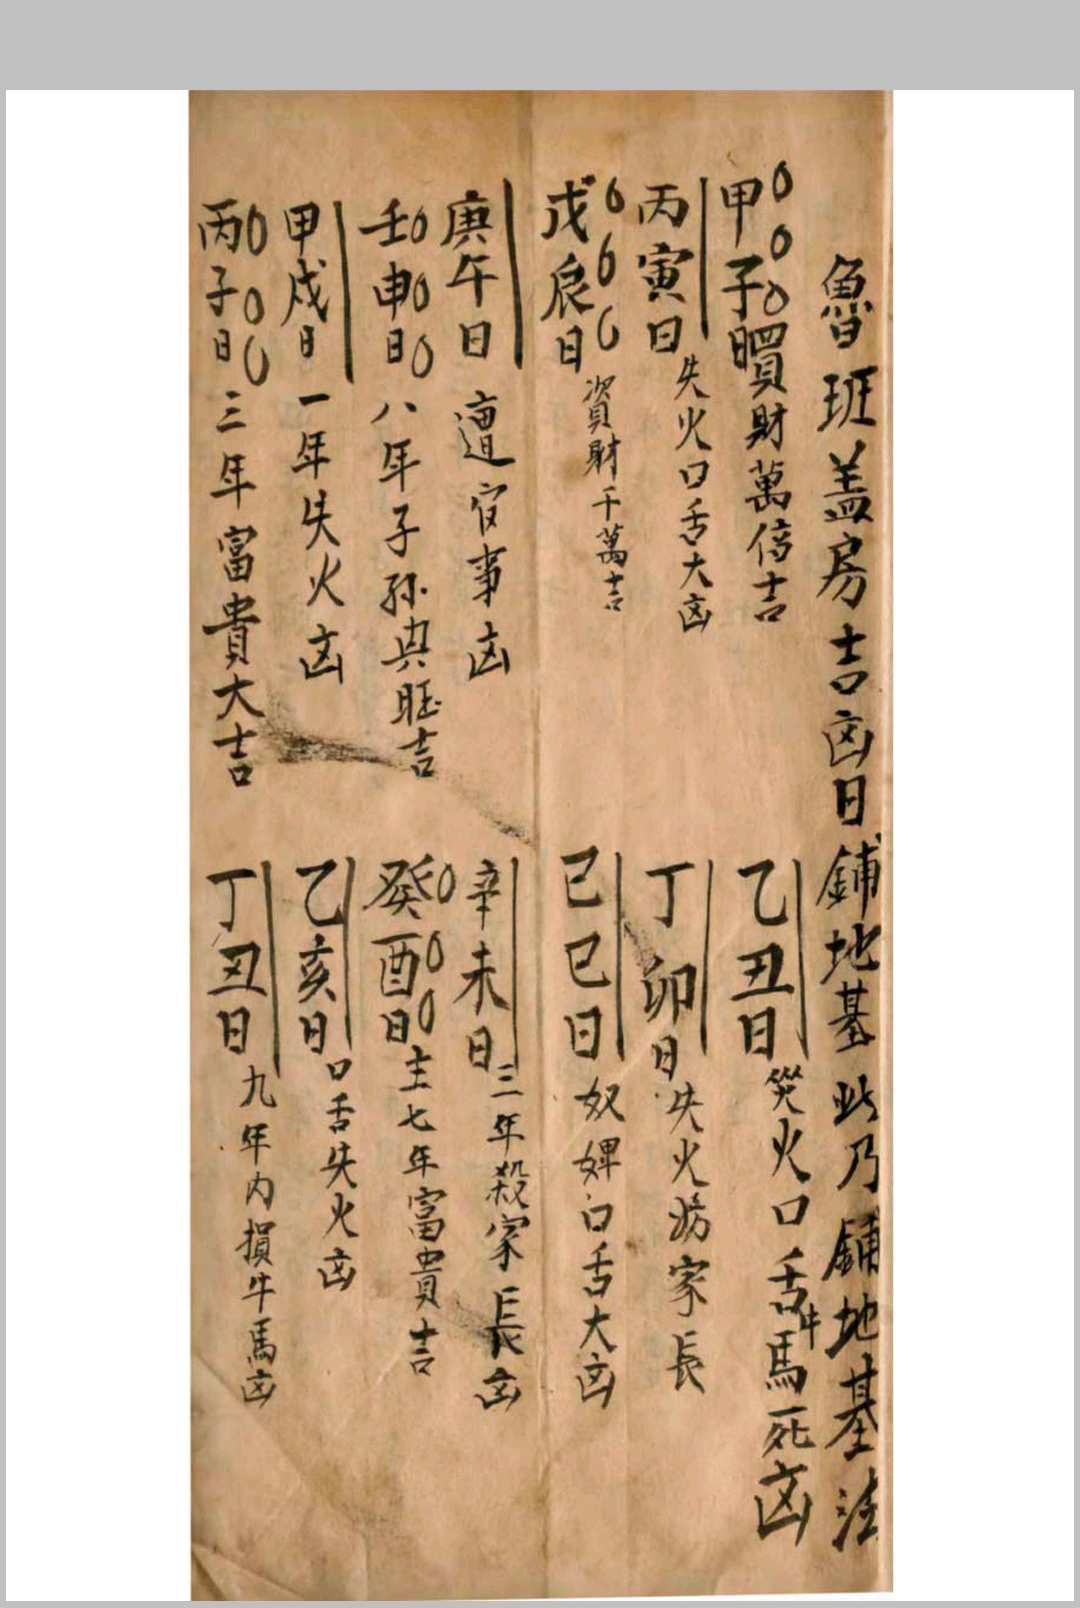 魯班盖房吉凶日鋪地基此乃鋪地基法
甲子日買財萬倍吉
乙丑日災火口舌牛馬死凶
丙寅日失火口舌大凶
丁卯日失火妨家長
戊辰日資財千萬吉
己巳日奴婢口舌大凶
庚午日遭官事凶
辛未日三年殺家長凶
壬申日八年子孫興旺吉
癸酉日主七年富貴吉
甲戌日一年失火凶
乙亥日口舌失火凶
丙子日三年富貴大吉
丁丑日九年内損牛馬凶